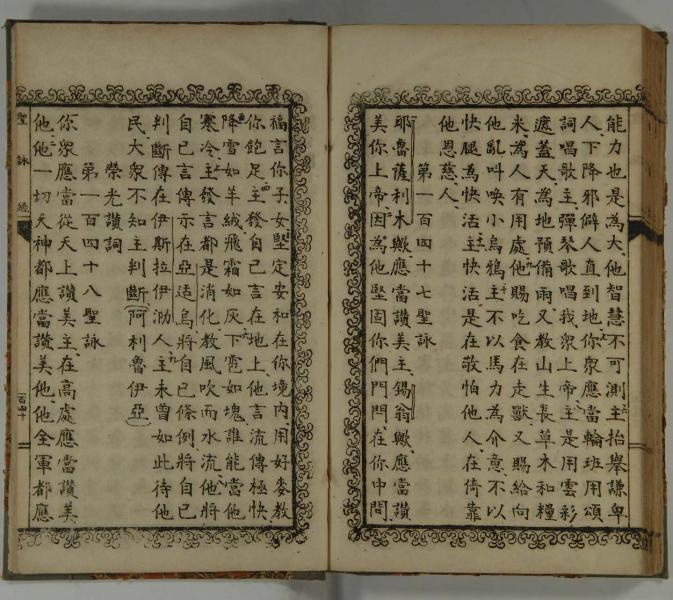 能力也是為大他智慧不可測主抬舉謙卑
人下降邪僻人直到地你衆應當輪班用頌
詞唱歌主彈琴歌唱我衆上帝主是用雲彩
遮蓋天為地預備雨又教山生長草木和糧
米為人有用處他賜吃食在走獸又賜給向
他亂叫喚小烏鴉主不以馬力為介意不以
快腿為快活主快活是在敬怕他人在倚靠
他恩慈人
第一百四十七聖詠
耶魯薩利木歟應當讚美主錫翁歟應當讚
美你上帝因為他堅固你們門閂在你中間
福言你子女堅定安和在你境內用好麥教
你飽足主發自己言在地上他言流傳極快
降雪如羊絨飛霜如灰下雹如塊誰能當他
寒冷主發言都是消化教風吹而水流他將
自己言傳示在亞适烏將自己條例將自己
判斷傳在伊斯拉伊泐人主未曾如此待他
民大衆不知主判斷阿利魯伊亞
榮光讚詞
第一百四十八聖詠
你衆應當從天上讚美主在高處應當讚美
他他一切天神都應當讚美他他全軍都應
聖詠經
百四十